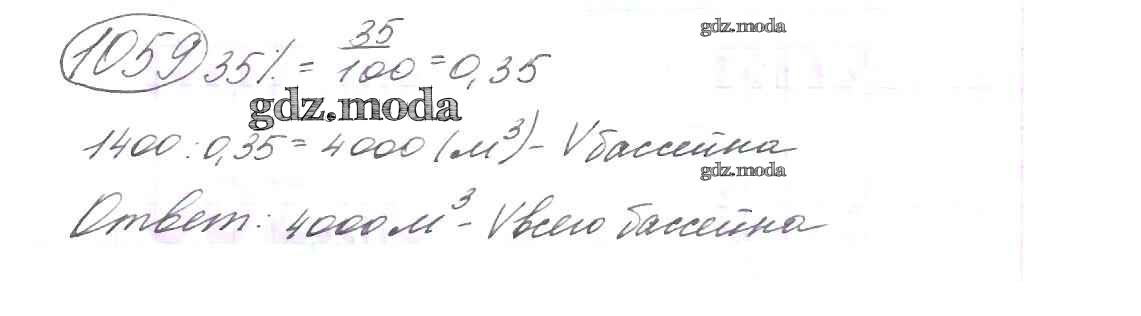 gdz.moda
1059 35% = 35/100 = 0,35
gdz.moda
1400 : 0,35 = 4000 (м³) - V бассейна
gdz.moda
Ответ: 4000 м³ - V всего бассейна